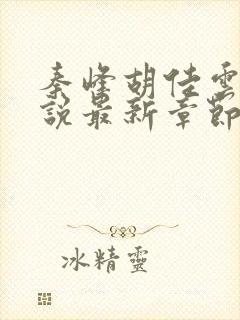 秦峰胡佳雲
說最新章節
冰精靈